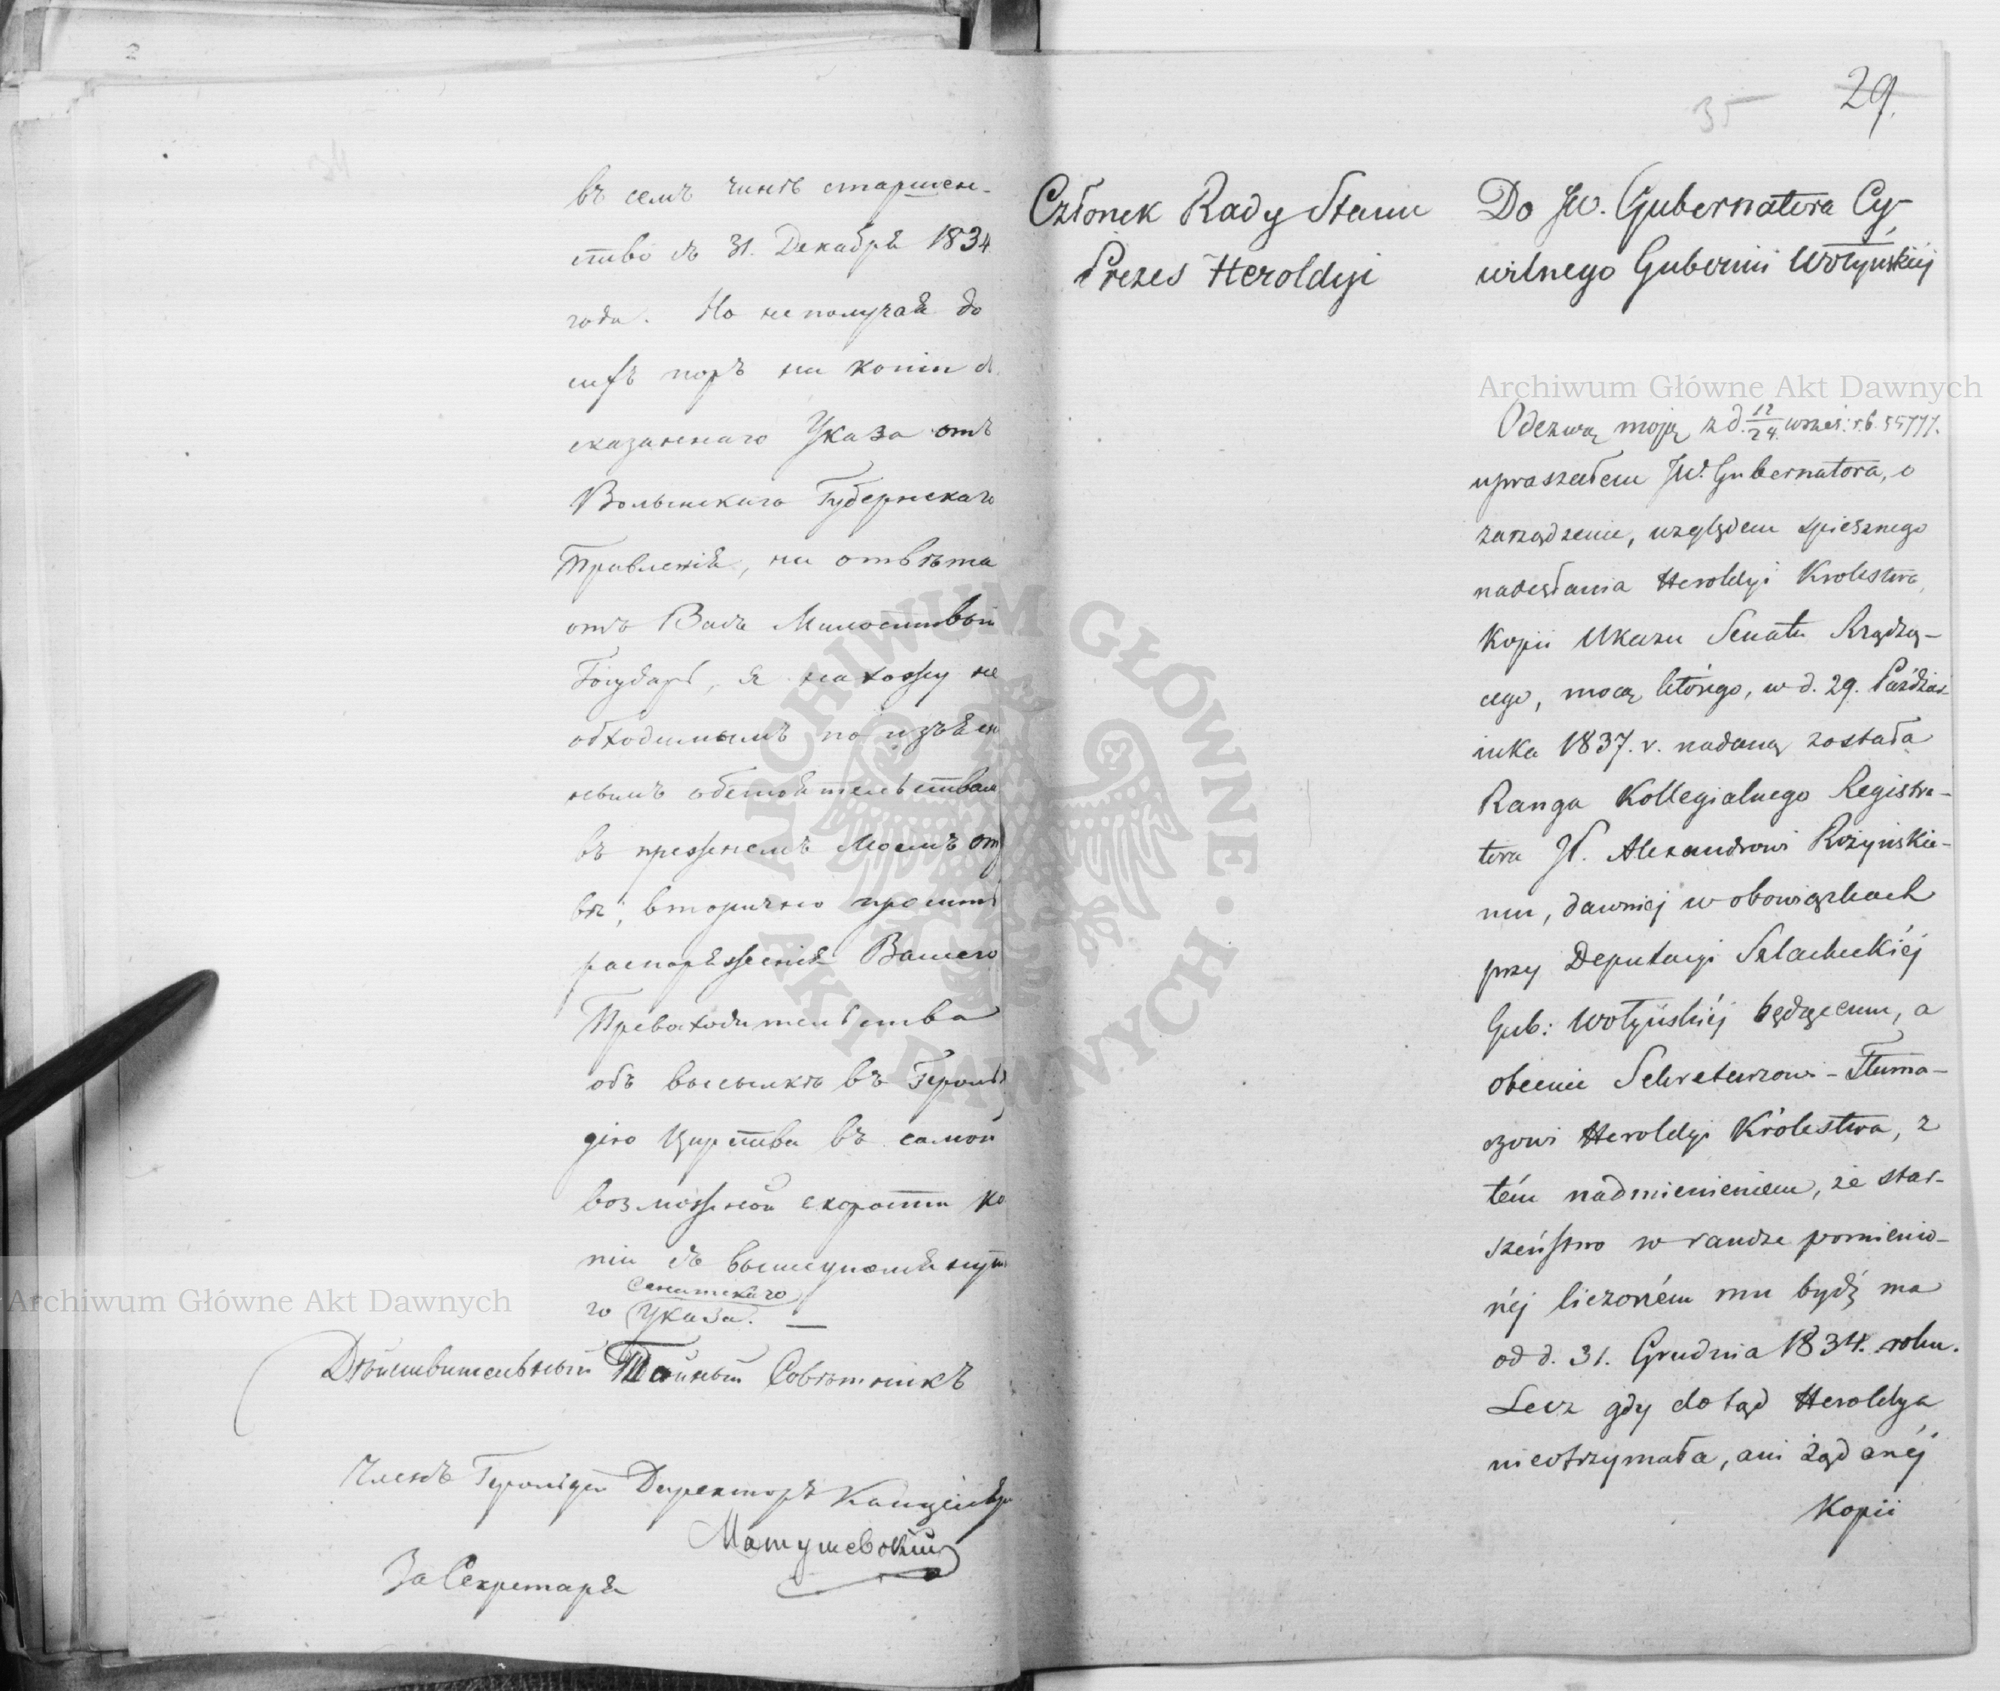 въ семъ чинѣ старшен-
ство съ 31. Декабря 1834
года. Но не получая до
сихъ поръ ни копіи съ
сказаннаго Указа отъ
Волынскаго Губернскаго
Правленія, ни отвѣта
отъ Васъ Милостивый
Государь, я нахожу не
обходимымъ по изъяснен
нымъ обстоятельствам
въ прежнемъ Моемъ отзы
вѣ, вторично просить
распоряженія Вашего
Превосходительства
объ высылкѣ въ Герольд
дію Царства въ самой
возможной скорости ко
піи съ вышеупомянут
Сенатскаго
го Указа. —
Дѣйствительный Тайный Совѣтникъ
Членъ Герольдіи Директоръ Канцеляріи
Матушевскій
За Секретаря
35
29.
Członek Rady Stanu
Prezes Heroldyi
Do Jw. Gubernatora Cy-
wilnego Gubernii Wołyńskiéj
Odezwą moją z d. 12/24 wrześ: r. b. 55777.
upraszałem JW. Gubernatora, o
zarządzenie, względem spiesznego
nadesłania Heroldyi Krolestwa,
Kopii Ukazu Senatu Rządzą-
cego, mocą którego, w d. 29. Paździer-
nika 1837. r. nadaną została
Ranga Kollegialnego Registra-
tora JP. Alexandrowi Rożyńskie-
mu, dawniej w obowiązkach
przy Deputacyi Szlacheckiéj
Gub: Wołyńskiéj będącemu, a
obecnie Sekretarzowi - Tłuma-
czowi Heroldyi Królestwa, z
tém nadmienieniem, że star-
szeństwo w randze pomienio-
néj liczoném mu bydź ma
od d. 31. Grudnia 1834. roku.
Lecz gdy dotąd Heroldya
nieotrzymała, ani żądanéj
Kopii
Archiwum Główne Akt Dawnych
Archiwum Główne Akt Dawnych
ARCHIWUM GŁÓWNE • AKT DAWNYCH •